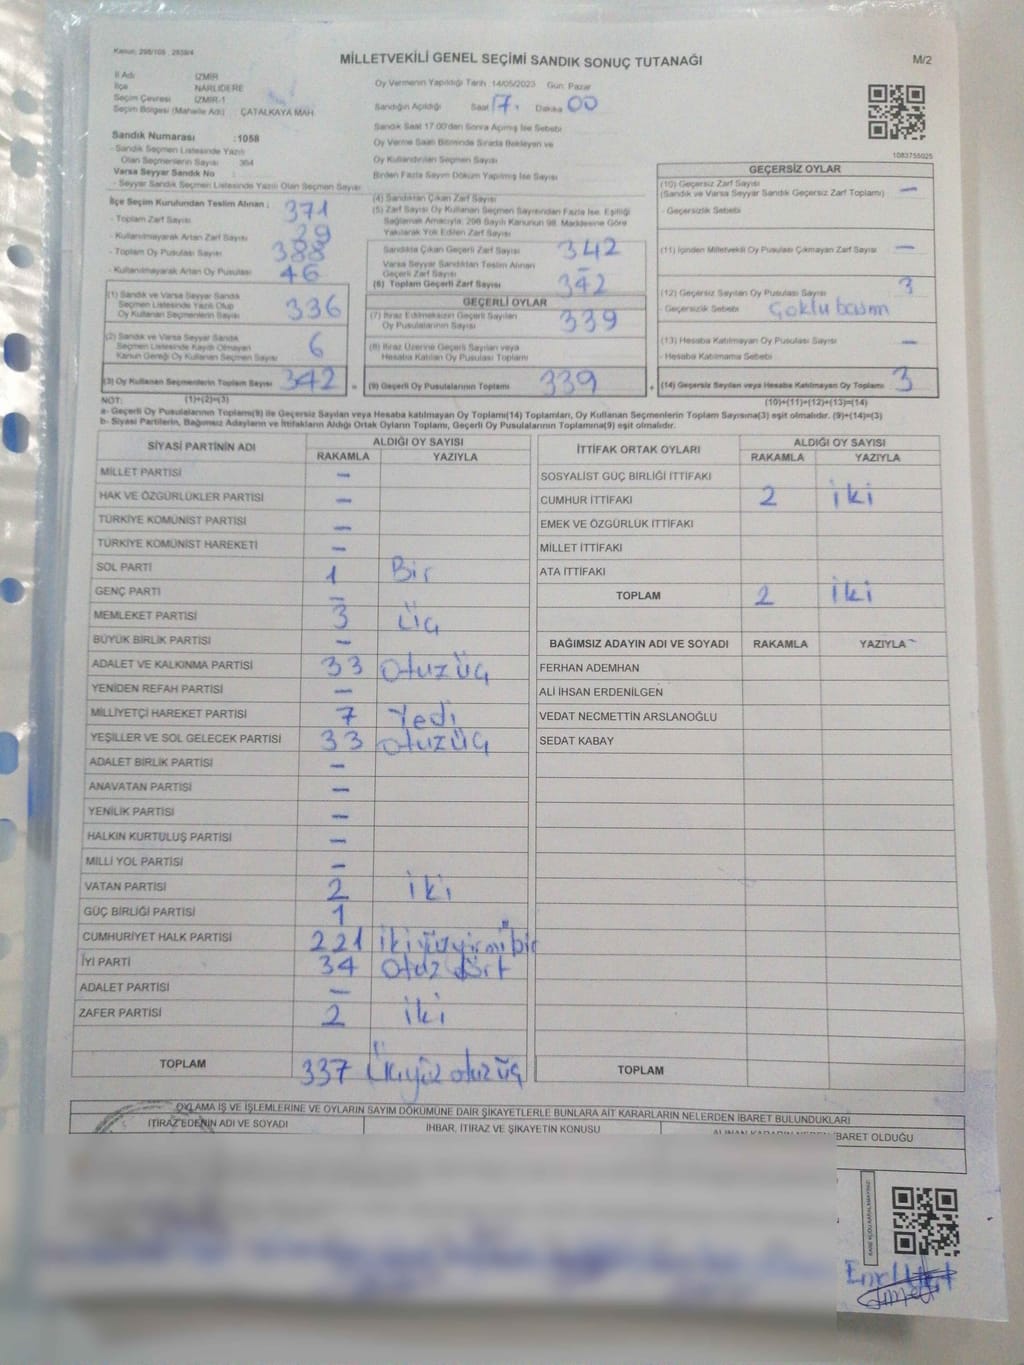 Kanun: 298/105 , 2839/4
MİLLETVEKİLİ GENEL SEÇİMİ SANDIK SONUÇ TUTANAĞI
M/2
İl Adı İZMİR
İlçe NARLIDERE
Seçim Çevresi İZMİR-1
Seçim Bölgesi (Mahalle Adı) ÇATALKAYA MAH.
Sandık Numarası :1058
- Sandık Seçmen Listesinde Yazılı
Olan Seçmenlerin Sayısı 364
Varsa Seyyar Sandık No
- Seyyar Sandık Seçmen Listesinde Yazılı Olan Seçmen Sayısı
Oy Vermenin Yapıldığı Tarih 14/05/2023 Gün: Pazar
Sandığın Açıldığı Saat 17 Dakika 00
Sandık Saat 17.00'den Sonra Açılmış İse Sebebi
Oy Verme Saati Bitiminde Sırada Bekleyen ve
Oy Kullandırılan Seçmen Sayısı
Birden Fazla Sayım Döküm Yapılmış İse Sayısı
1083755025
İlçe Seçim Kurulundan Teslim Alınan :
- Toplam Zarf Sayısı 371
- Kullanılmayarak Artan Zarf Sayısı 29
- Toplam Oy Pusulası Sayısı 388
- Kullanılmayarak Artan Oy Pusulası 46
(1) Sandık ve Varsa Seyyar Sandık
Seçmen Listesinde Yazılı Olup
Oy Kullanan Seçmenlerin Sayısı 336
(2) Sandık ve Varsa Seyyar Sandık
Seçmen Listesinde Kaydı Olmayan
Kanun Gereği Oy Kullanan Seçmen Sayısı 6
(3) Oy Kullanan Seçmenlerin Toplam Sayısı 342
(4) Sandıktan Çıkan Zarf Sayısı
(5) Zarf Sayısı Oy Kullanan Seçmen Sayısından Fazla İse, Eşitliği
Sağlamak Amacıyla, 298 Sayılı Kanunun 98. Maddesine Göre
Yakılarak Yok Edilen Zarf Sayısı
Sandıkta Çıkan Geçerli Zarf Sayısı 342
Varsa Seyyar Sandıktan Teslim Alınan
Geçerli Zarf Sayısı –
(6) Toplam Geçerli Zarf Sayısı 342
GEÇERLİ OYLAR
(7) İtiraz Edilmeksizin Geçerli Sayılan
Oy Pusulalarının Sayısı 339
(8) İtiraz Üzerine Geçerli Sayılan veya
Hesaba Katılan Oy Pusulası Toplamı
= (9) Geçerli Oy Pusulalarının Toplamı 339
GEÇERSİZ OYLAR
(10) Geçersiz Zarf Sayısı
(Sandık ve Varsa Seyyar Sandık Geçersiz Zarf Toplamı) –
- Geçersizlik Sebebi
(11) İçinden Milletvekili Oy Pusulası Çıkmayan Zarf Sayısı –
(12) Geçersiz Sayılan Oy Pusulası Sayısı 3
- Geçersizlik Sebebi Çoklu basım
(13) Hesaba Katılmayan Oy Pusulası Sayısı –
- Hesaba Katılmama Sebebi
+ (14) Geçersiz Sayılan veya Hesaba Katılmayan Oy Toplamı 3
NOT: (1)+(2)=(3)
(10)+(11)+(12)+(13)=(14)
a- Geçerli Oy Pusulalarının Toplamı(9) ile Geçersiz Sayılan veya Hesaba katılmayan Oy Toplamı(14) Toplamları, Oy Kullanan Seçmenlerin Toplam Sayısına(3) eşit olmalıdır. (9)+(14)=(3)
b- Siyasi Partilerin, Bağımsız Adayların ve İttifakların Aldığı Ortak Oyların Toplamı, Geçerli Oy Pusulalarının Toplamına(9) eşit olmalıdır.
SİYASİ PARTİNİN ADI ALDIĞI OY SAYISI
RAKAMLA YAZIYLA
MİLLET PARTİSİ –
HAK VE ÖZGÜRLÜKLER PARTİSİ –
TÜRKİYE KOMÜNİST PARTİSİ –
TÜRKİYE KOMÜNİST HAREKETİ –
SOL PARTİ 1 Bir
GENÇ PARTİ –
MEMLEKET PARTİSİ 3 Üç
BÜYÜK BİRLİK PARTİSİ –
ADALET VE KALKINMA PARTİSİ 33 otuzüç
YENİDEN REFAH PARTİSİ –
MİLLİYETÇİ HAREKET PARTİSİ 7 Yedi
YEŞİLLER VE SOL GELECEK PARTİSİ 33 otuzüç
ADALET BİRLİK PARTİSİ –
ANAVATAN PARTİSİ –
YENİLİK PARTİSİ –
HALKIN KURTULUŞ PARTİSİ –
MİLLİ YOL PARTİSİ –
VATAN PARTİSİ 2 iki
GÜÇ BİRLİĞİ PARTİSİ 1
CUMHURİYET HALK PARTİSİ 221 ikiyüzyirmibir
İYİ PARTİ 34 otuz dört
ADALET PARTİSİ –
ZAFER PARTİSİ 2 iki
TOPLAM 337 Üçyüz otuzüç
İTTİFAK ORTAK OYLARI ALDIĞI OY SAYISI
RAKAMLA YAZIYLA
SOSYALİST GÜÇ BİRLİĞİ İTTİFAKI
CUMHUR İTTİFAKI 2 iki
EMEK VE ÖZGÜRLÜK İTTİFAKI
MİLLET İTTİFAKI
ATA İTTİFAKI
TOPLAM 2 iki
BAĞIMSIZ ADAYIN ADI VE SOYADI RAKAMLA YAZIYLA
FERHAN ADEMHAN
ALİ İHSAN ERDENİLGEN
VEDAT NECMETTİN ARSLANOĞLU
SEDAT KABAY
TOPLAM
OYLAMA İŞ VE İŞLEMLERİNE VE OYLARIN SAYIM DÖKÜMÜNE DAİR ŞİKAYETLERLE BUNLARA AİT KARARLARIN NELERDEN İBARET BULUNDUKLARI
İTİRAZ EDENİN ADI VE SOYADI İHBAR, İTİRAZ VE ŞİKAYETİN KONUSU ALINAN KARARIN NEDEN İBARET OLDUĞU